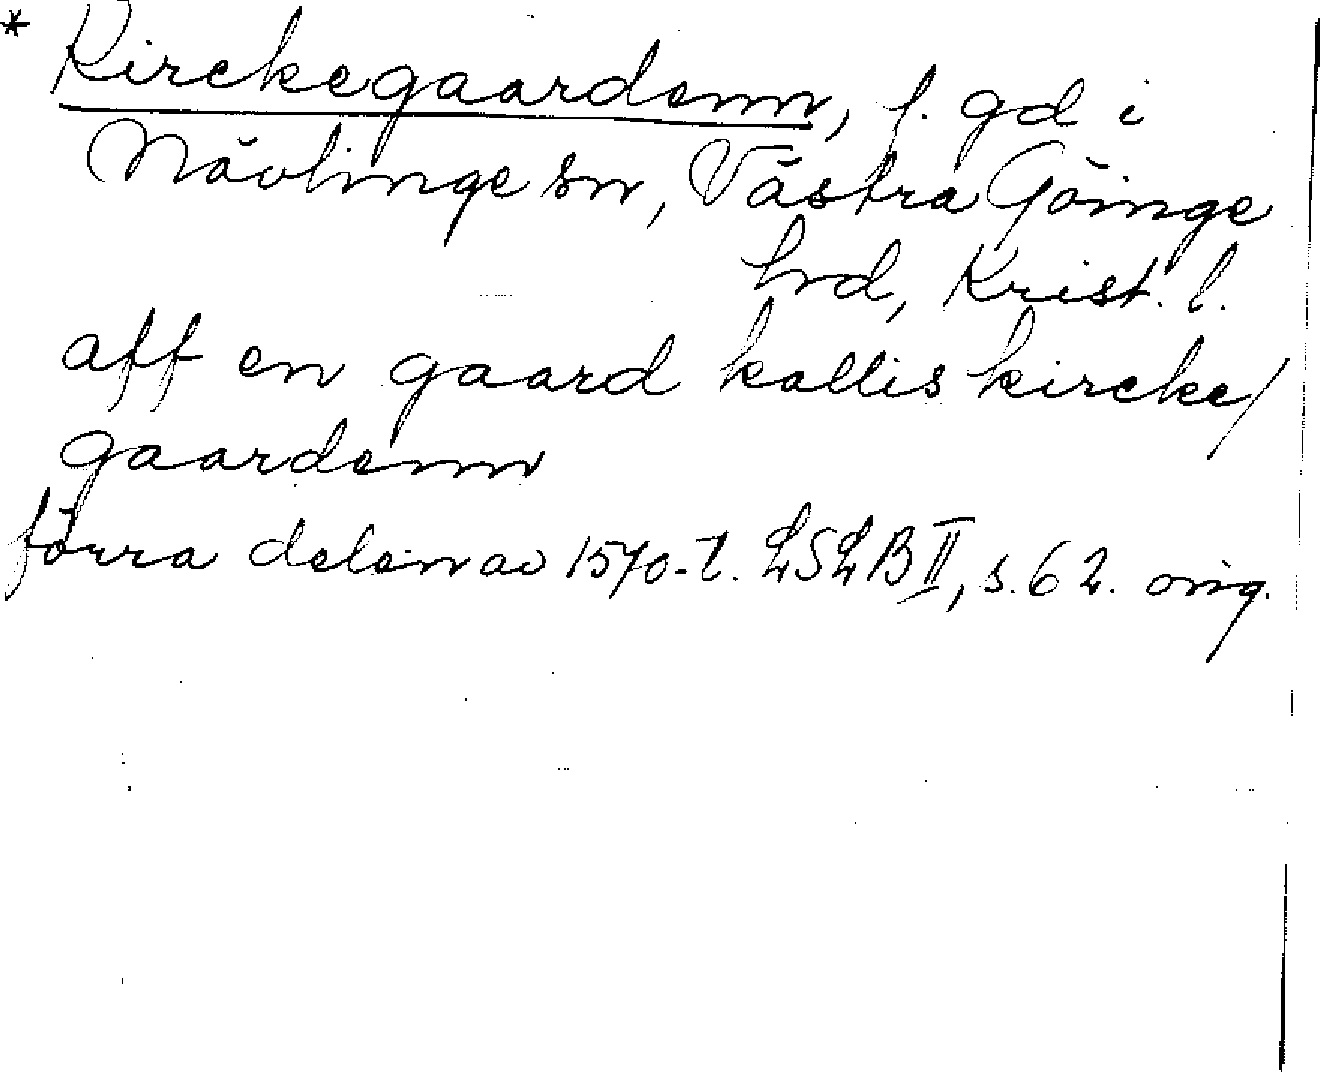 * Kirckegaardenn, f. gd i
Nävlinge sn, Västra Göinge
hrd, Krist. l.
aff en gaard kallis kircke/
gaardenn
förra delen av 1570-t. LSLB II, s. 62. orig.